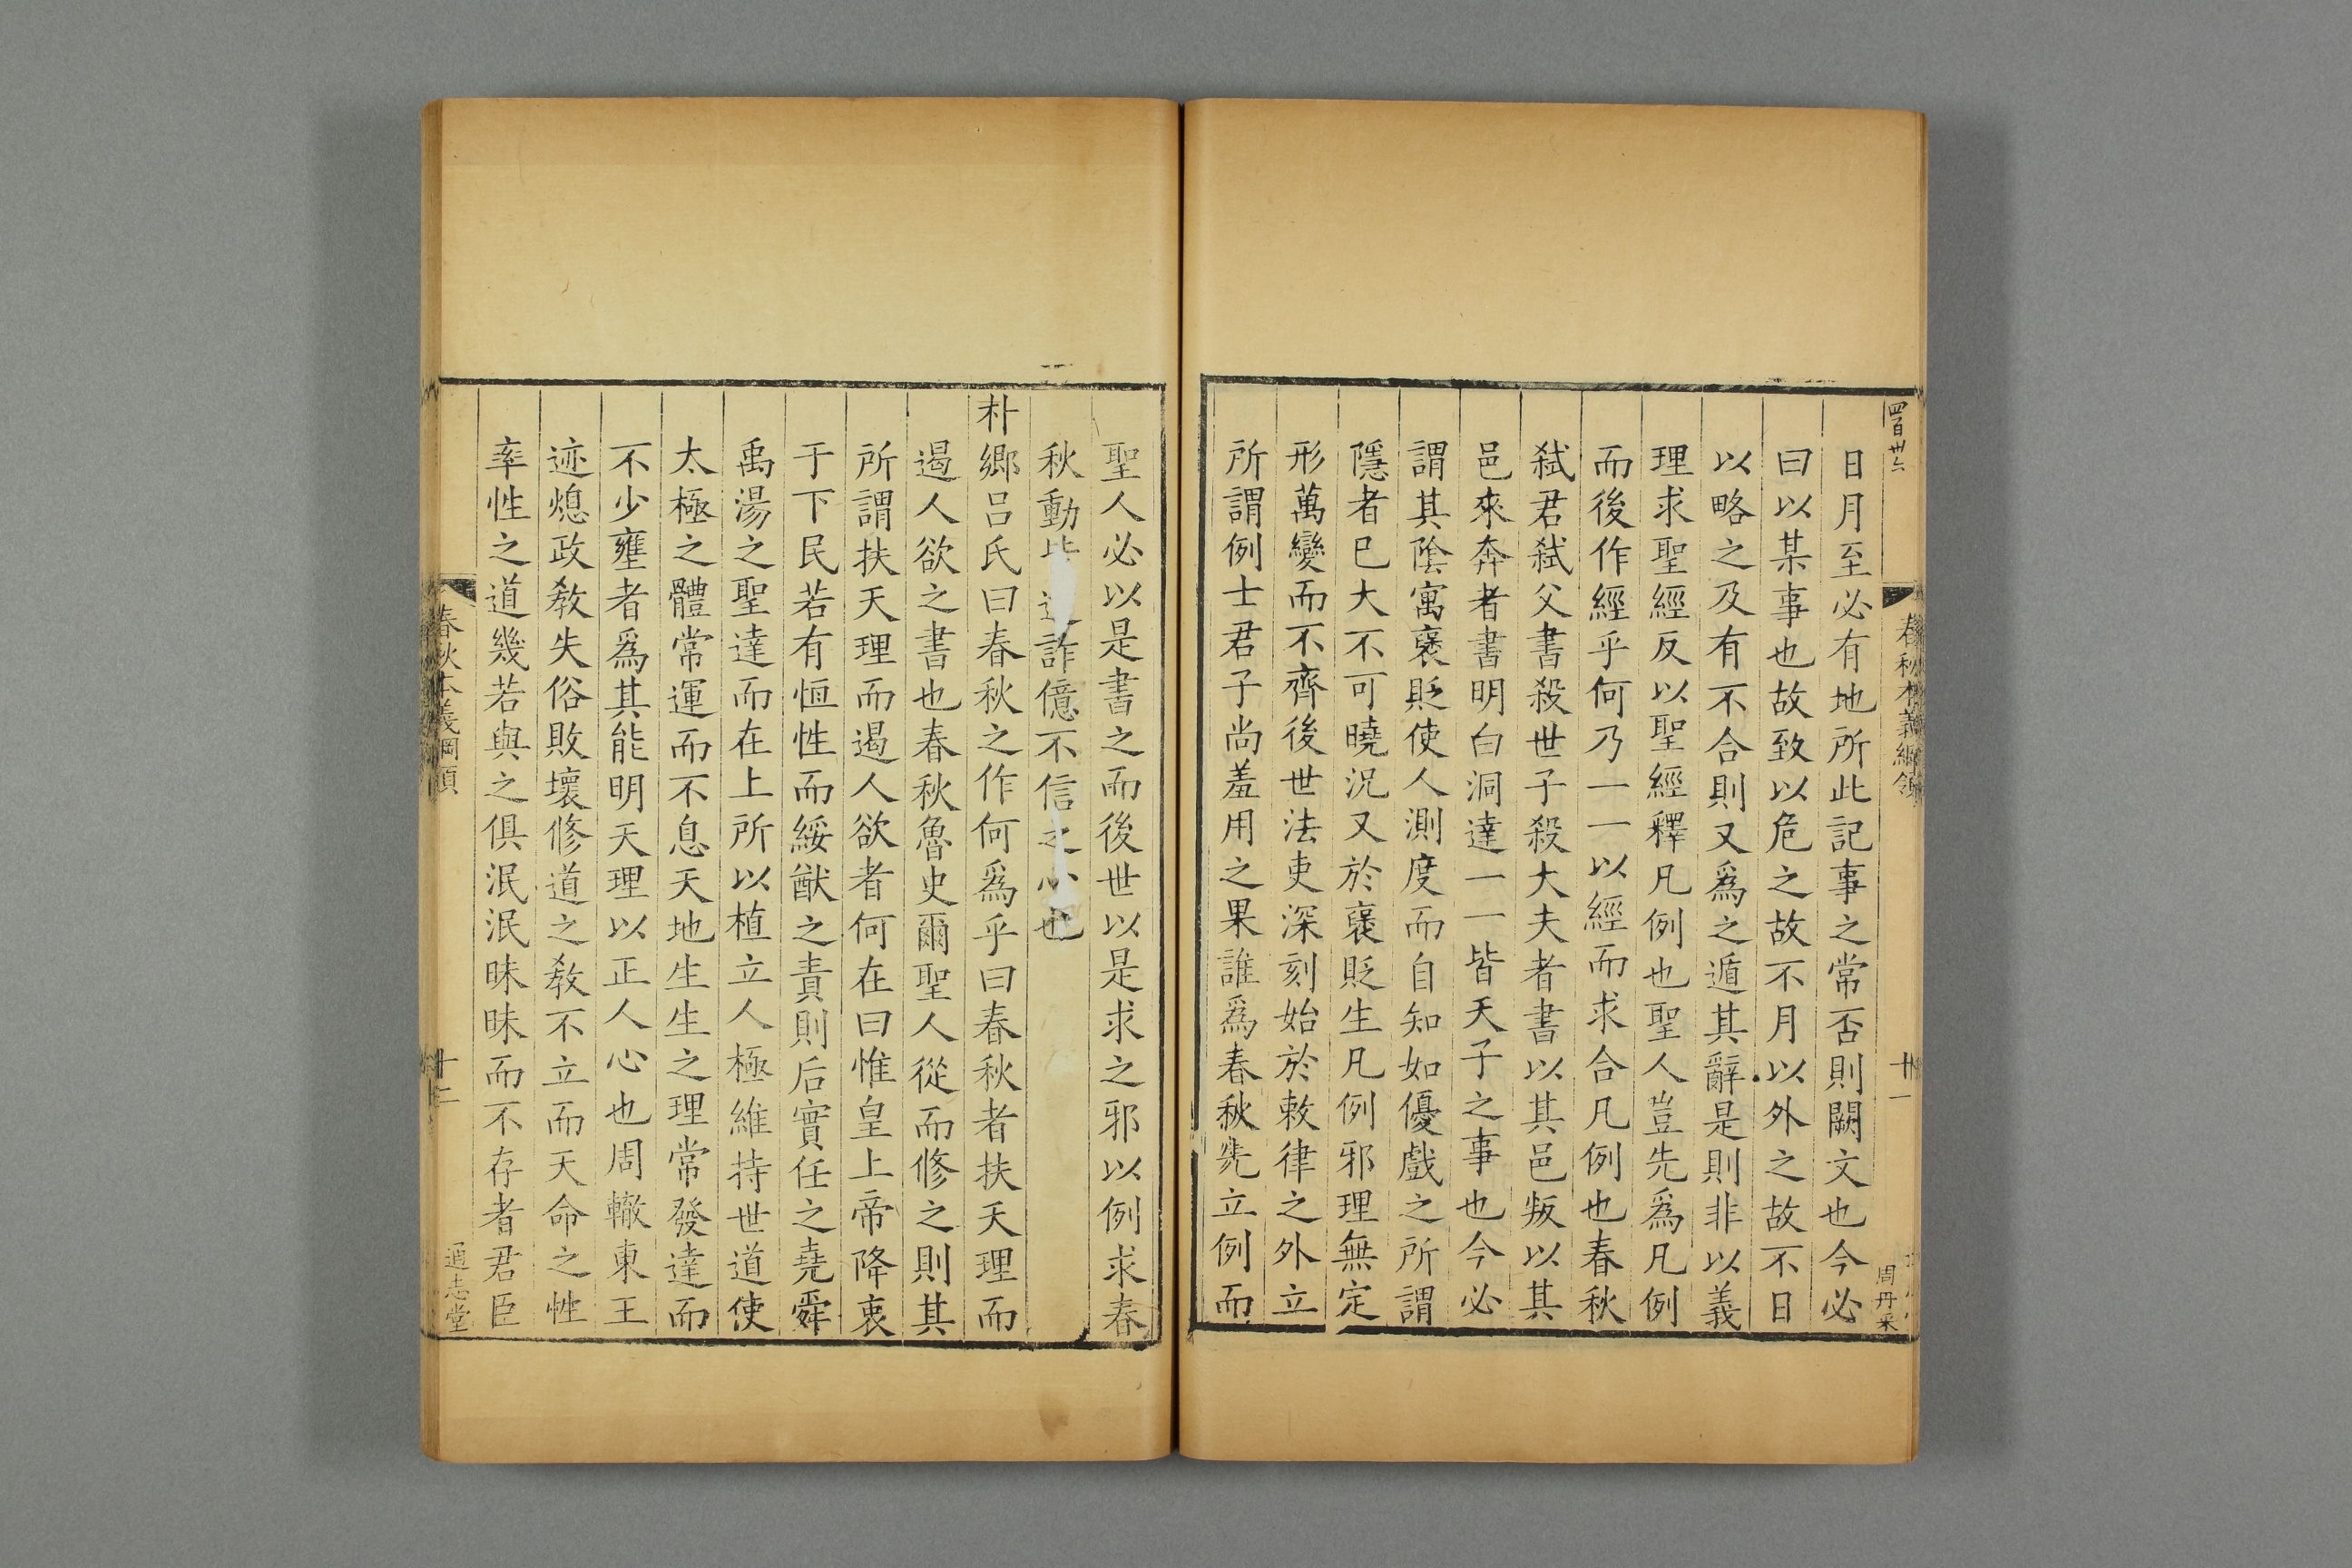 四百卅六
春秋本義綱領
十一
周丹采
日月至必有地所此記事之常否則闕文也今必
曰以某事也故致以危之故不月以外之故不日
以略之及有不合則又爲之遁其辭是則非以義
理求聖經反以聖經釋凡例也聖人豈先爲凡例
而後作經乎何乃一一以經而求合凡例也春秋
弑君弑父書殺世子殺大夫者書以其邑叛以其
邑來奔者書明白洞達一一皆天子之事也今必
謂其陰寓襃貶使人測度而自知如優戲之所謂
隱者巳大不可曉況又於襃貶生凡例邪理無定
形萬變而不齊後世法吏深刻始於敕律之外立
所謂例士君子尚羞用之果誰爲春秋先立例而
聖人必以是書之而後世以是求之邪以例求春
秋動皆詐億不信之心也
朴鄉呂氏曰春秋之作何爲乎曰春秋者扶天理而
遏人欲之書也春秋魯史爾聖人從而修之則其
所謂扶天理而遏人欲者何在曰惟皇上帝降衷
于下民若有恒性而綏猷之責則后實任之堯舜
禹湯之聖達而在上所以植立人極維持世道使
太極之體常運而不息天地生生之理常發達而
不少壅者爲其能明天理以正人心也周轍東王
迹熄政教失俗敗壞修道之教不立而天命之性
率性之道幾若與之俱泯泯昧昧而不存者君臣
春秋本義綱領
十二
通志堂